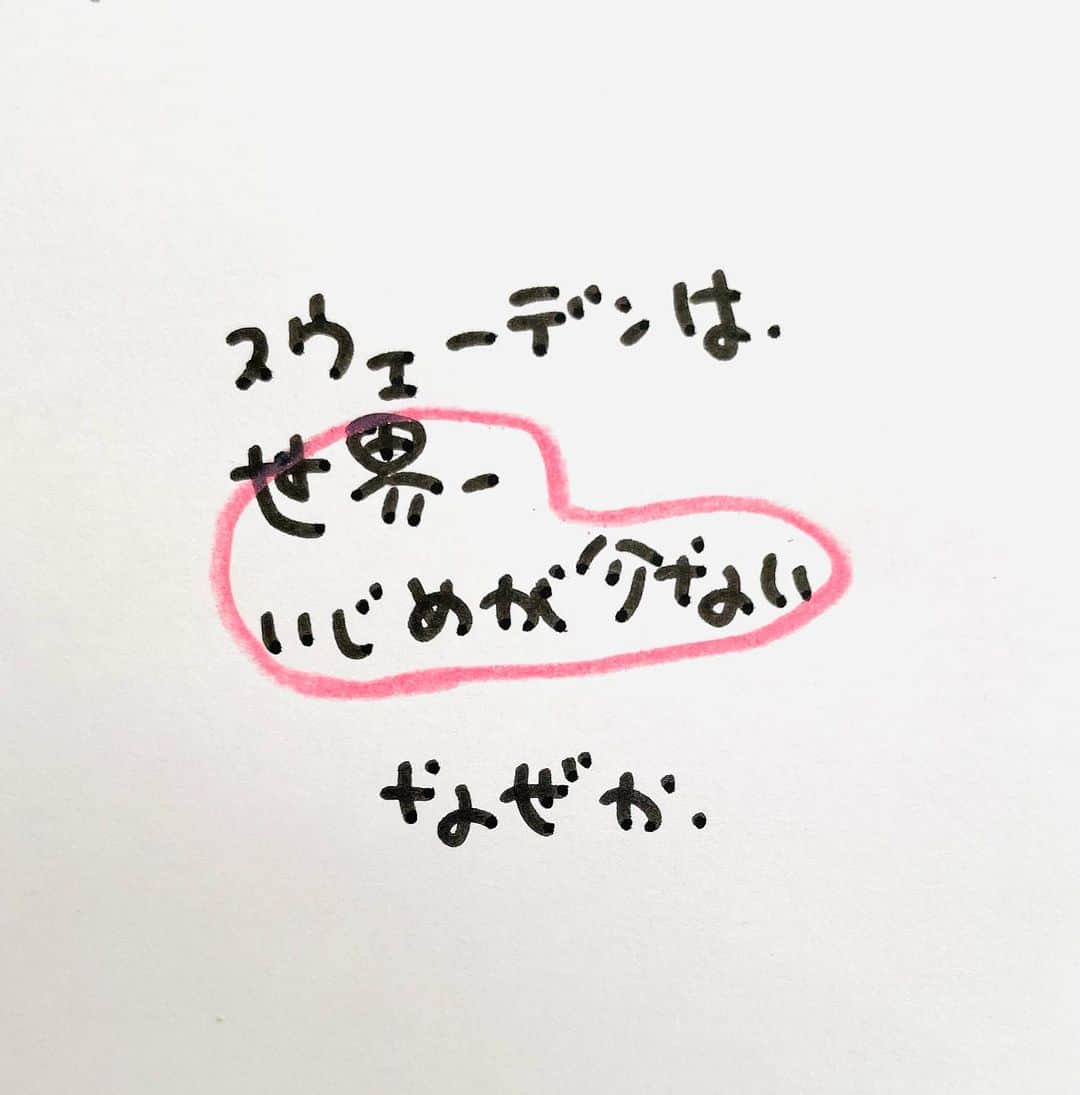 スウェーデンは.
世界一
いじめが少ない
なぜか.